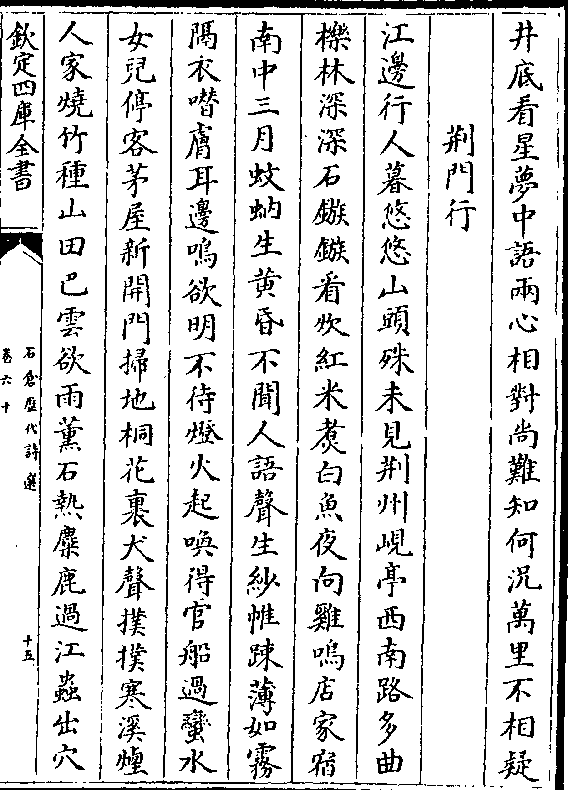 井底看星夢中語兩心相對尚難知何況萬里不相疑
荆門行
江邊行人暮悠悠山頭殊未見荆州峴亭西南路多曲
櫟林深深石鏃鏃看炊紅米煑白魚夜向雞鳴店家宿
南中三月蚊蚋生黄昏不聞人語聲生紗帷踈薄如霧
隔衣噆膚耳邊鳴欲明不待燈火起喚得官船過蠻水
女兒停客茅屋新開門掃地桐花裏犬聲撲撲寒溪煙
人家燒竹種山田巴雲欲雨薰石熱麋鹿過江蟲出穴
欽定四庫全書
石倉歷代詩選
卷六十
十五